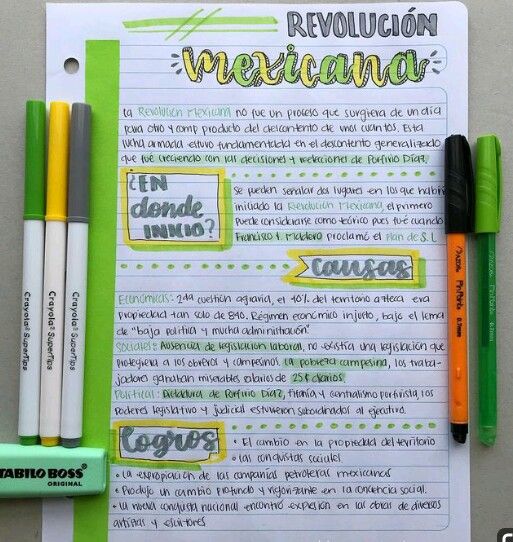 REVOLUCIÓN
mexicana
La Revolución Mexicana no fue un proceso que surgiera de un día
para otro y como producto del descontento de unos cuantos. Esta
lucha armada estuvo fundamentada en el descontento generalizado
que fue creciendo con las decisiones y reelecciones de Porfirio Díaz.
¿EN
donde
INICIO?
Se pueden señalar dos lugares en los que habría
iniciado la Revolución Mexicana, el primero
puede considerarse como teórico pues fue cuando
Francisco I. Madero proclamó el Plan de S.L
Causas
Económicas: 2da cuestión agraria, el 40% del territorio azteca era
propiedad tan solo de 840. Régimen económico injusto, bajo el lema
de "baja política y mucha administración"
Sociales: Ausencia de legislación laboral, no existía una legislación que
protegiera a los obreros y campesinos. La pobreza campesina, los traba-
jadores ganaban miserables salarios de 25¢ diarios.
Política: Dictadura de Porfirio Díaz, tiranía y centralismo porfirista, los
poderes legislativo y judicial estuvieron subordinados al ejecutivo.
Logros
• El cambio en la propiedad del territorio
• Las conquistas sociales
• La expropiación de las compañías petroleras mexicanas
• Produjo un cambio profundo y vigorizante en la conciencia social.
• La nueva conquista nacional encontró expresión en las obras de diversos
artistas y escritores
Crayola SuperTips
Crayola SuperTips
Crayola SuperTips
TABILO BOSS
ORIGINAL
PinPoint
0.7mm
PinPoint
0.7mm